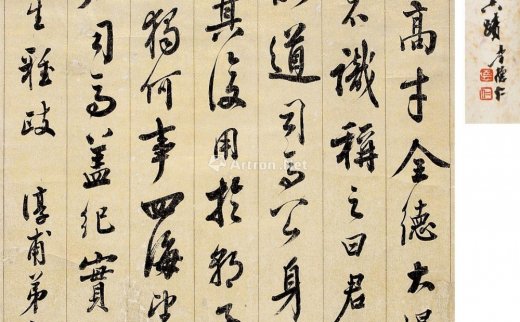 高才全德大得
不識稱之曰君
能道司馬公身
其復用於朝
獨何事四海望
司馬蓋紀實
生雅政 淳甫弟
真蹟
Artron.Net